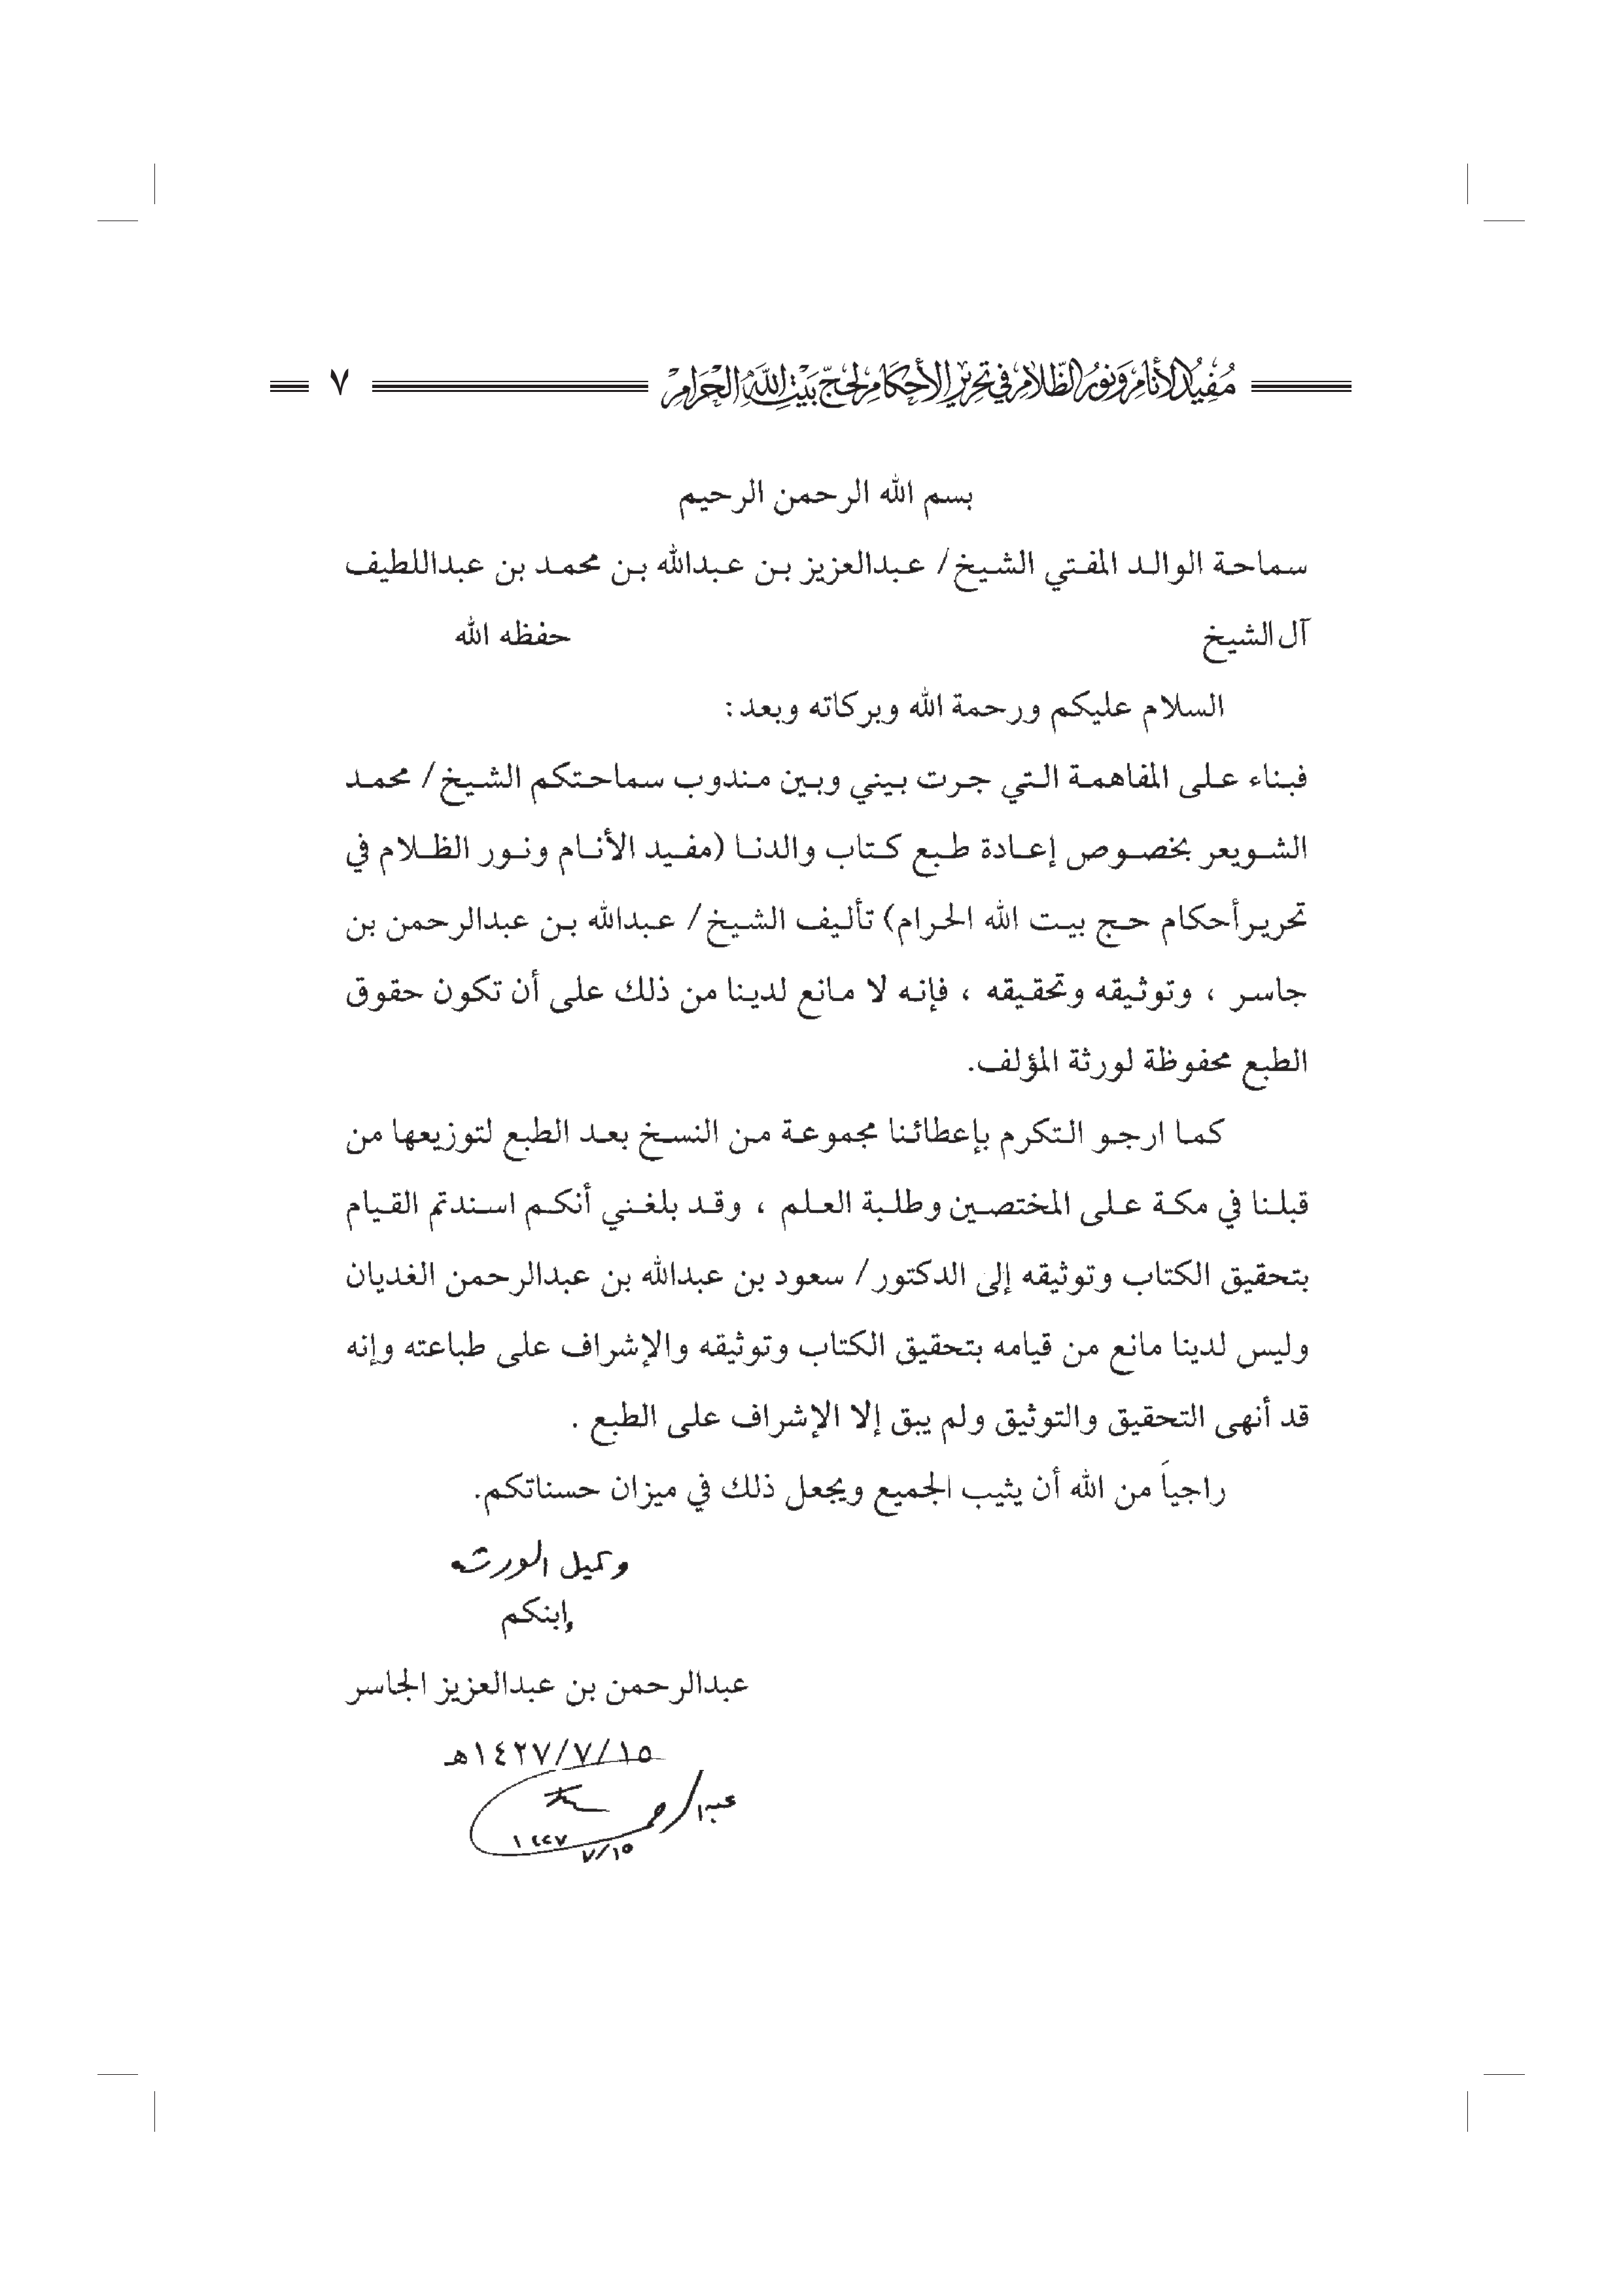 مُفِيدُ الأَنَامِ وَنُورُ الظَّلَامِ فِي تَحْرِيرِ الأَحْكَامِ لِحَجِّ بَيْتِ اللَّهِ الحَرَامِ ٧
بسم الله الرحمن الرحيم
سماحة الوالد المفتي الشيخ/ عبدالعزيز بن عبدالله بن محمد بن عبداللطيف
آل الشيخ حفظه الله
السلام عليكم ورحمة الله وبركاته وبعد:
فبناء على المفاهمة التي جرت بيني وبين مندوب سماحتكم الشيخ/ محمد
الشويعر بخصوص إعادة طبع كتاب والدنا (مفيد الأنام ونور الظلام في
تحريرأحكام حج بيت الله الحرام) تأليف الشيخ/ عبدالله بن عبدالرحمن بن
جاسر ، وتوثيقه وتحقيقه ، فإنه لا مانع لدينا من ذلك على أن تكون حقوق
الطبع محفوظة لورثة المؤلف.
كما ارجو التكرم بإعطائنا مجموعة من النسخ بعد الطبع لتوزيعها من
قبلنا في مكة على المختصين وطلبة العلم ، وقد بلغني أنكم اسندتم القيام
بتحقيق الكتاب وتوثيقه إلى الدكتور/ سعود بن عبدالله بن عبدالرحمن الغديان
وليس لدينا مانع من قيامه بتحقيق الكتاب وتوثيقه والإشراف على طباعته وإنه
قد أنهى التحقيق والتوثيق ولم يبق إلا الإشراف على الطبع .
راجياً من الله أن يثيب الجميع ويجعل ذلك في ميزان حسناتكم.
وكيل الورثه
وابنكم
عبدالرحمن بن عبدالعزيز الجاسر
١٤٢٧/٧/١٥هـ
١٤٢٧
٧/١٥